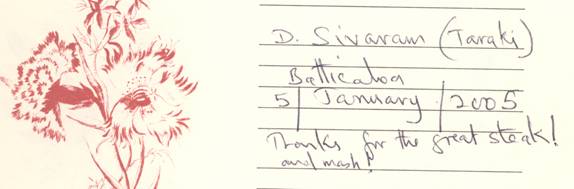 D. Sivaram (Taraki)
Batticaloa
5 | January | 2005
Thanks for the great steak!
and mash!